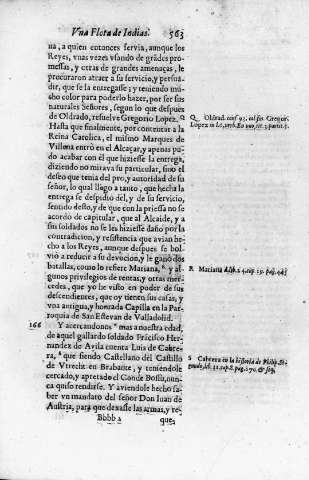 Vna Flota de Indias. 563
na, a quien entonces servia, aunque los
Reyes, vnas vezes vsando de grãdes pro-
messas, y otras de grandes amenaças, le
procuraron atraer a su servicio, y persua-
dir, que se la entregasse; y teniendo mu-
cho color para poderlo hazer, por ser sus
naturales Señores, segun lo que despues
de Oldrado, resuelve Gregorio Lopez. Q
Hasta que finalmente, por contentar a la
Reina Catolica, el mismo Marques de
Villena entrò en el Alcaçar, y apenas pu-
do acabar con èl que hiziesse la entrega,
diziendo no mirava su particular, sino el
deseo que tenia del pro, y autoridad de su
señor, lo qual llago a tanto, que hecha la
entrega se despidio del, y de su servicio,
sentido desto, y de que con la priessa no se
acordo de capitular, que al Alcaide, y a
sus soldados no se les hiziesse daño por la
contradicion, y resistencia que avian he-
cho a los Reyes, aunque despues se bol-
viò a reducir a su devocion, y le ganò dos
batallas, como lo refiere Mariana, R y al-
gunos privilegios de rentas, y otras mer-
cedes, que yo he visto en poder de sus
descendientes, que oy tienen sus casas, y
vna antigua, y honrada Capilla en la Par-
roquia de San Estevan de Valladolid.
166 Y acercandonos mas a nuestra edad,
de aquel gallardo soldado Frãcisco Her-
nandez de Avila cuenta Luis de Cabre-
ra, S que siendo Castellano del Castillo
de Vtrecht en Brabante, y teniendole
cercado, y apretado el Conde Bossu, nun-
ca quiso rendirse. Y aviendole hecho sa-
ber vn mandato del señor Don Iuan de
Austria, para que dexasse las armas, y re-
Bbbb 2 que;
Q Oldrad. cons. 93. vbi sup. Gregor.
Lopez in
R Mariana
S Cabrera en la historia de Philip. Se-
gundo, lib. 11. cap. 8. pag. 170. & seq.